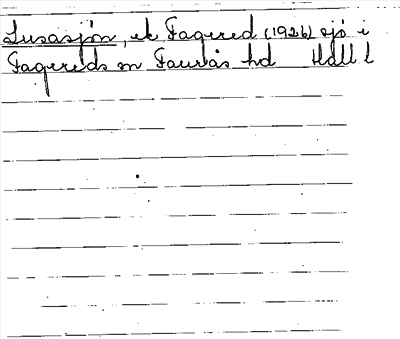 Lusasjön, ek Fagered (1926) sjö i
Fagereds sn Faurås hd Hall l